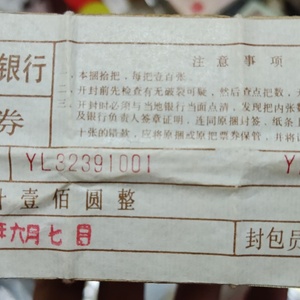 银行
券
注意事项
一、本捆拾把，每把壹百张。
二、开封前先检查有无破裂可疑，然后查点把数，
三、开封时必须与当地银行当面点清，发现把内张
及银行负责人签章证明，连同原捆封签，纸条
十张的错款，应将原捆或原把票券保管，并将
YL32391001
Y
计壹佰圆整
年六月七日
封包员